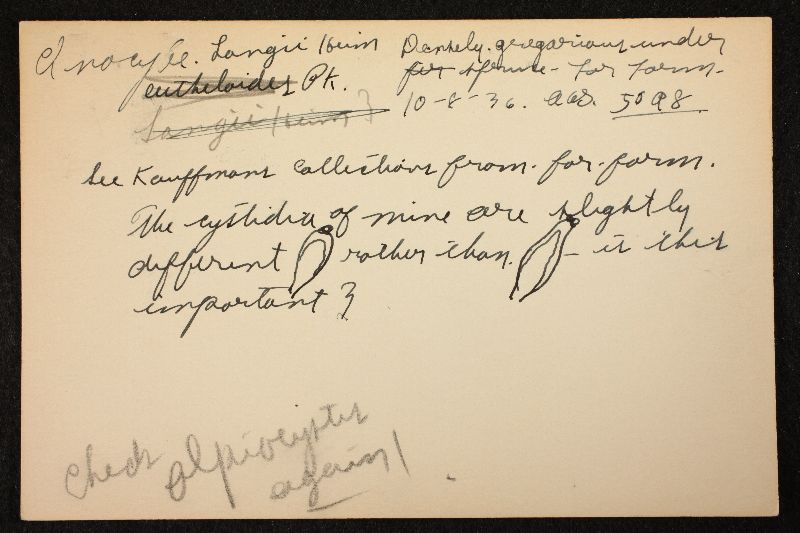 Inocybe. Langii Heim
eutheloides Pk.
Langii Heim ?
Densely gregarious under
fir spruce - for. farm.
10-8-36. AHS. 5098.
See Kauffmans collections from for. farm.
The cystidia of mine are slightly
different rather than - is this
important ?
Check
again!